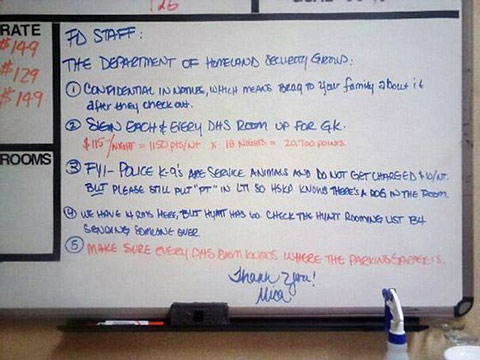 126
RATE
$149
$129
$149
ROOMS
FD STAFF:
THE DEPARTMENT OF HOMELAND SECURITY GROUP:
① CONFIDENTIAL IN NATURE, WHICH MEANS BRAG TO YOUR family about it
after they check out.
② SIGN EACH & EVERY DHS ROOM UP FOR G.K.
$115/NIGHT = 1150 PTS/NT X 18 NIGHTS = 20,700 POINTS.
③ FYI- POLICE K-9's ARE SERVICE ANIMALS AND DO NOT GET CHARGED $10/NT.
BUT PLEASE STILL PUT "PT" IN LTI SO HSKP KNOWS THERE'S A DOG IN THE ROOM.
④ WE HAVE 14 RMS HERE, BUT HYATT HAS 60. CHECK THE HYATT ROOMING LIST B4
SENDING SOMEONE OVER.
⑤ MAKE SURE EVERY DHS KNOWS WHERE THE PARKING GARAGE IS.
Thank you!
Mica